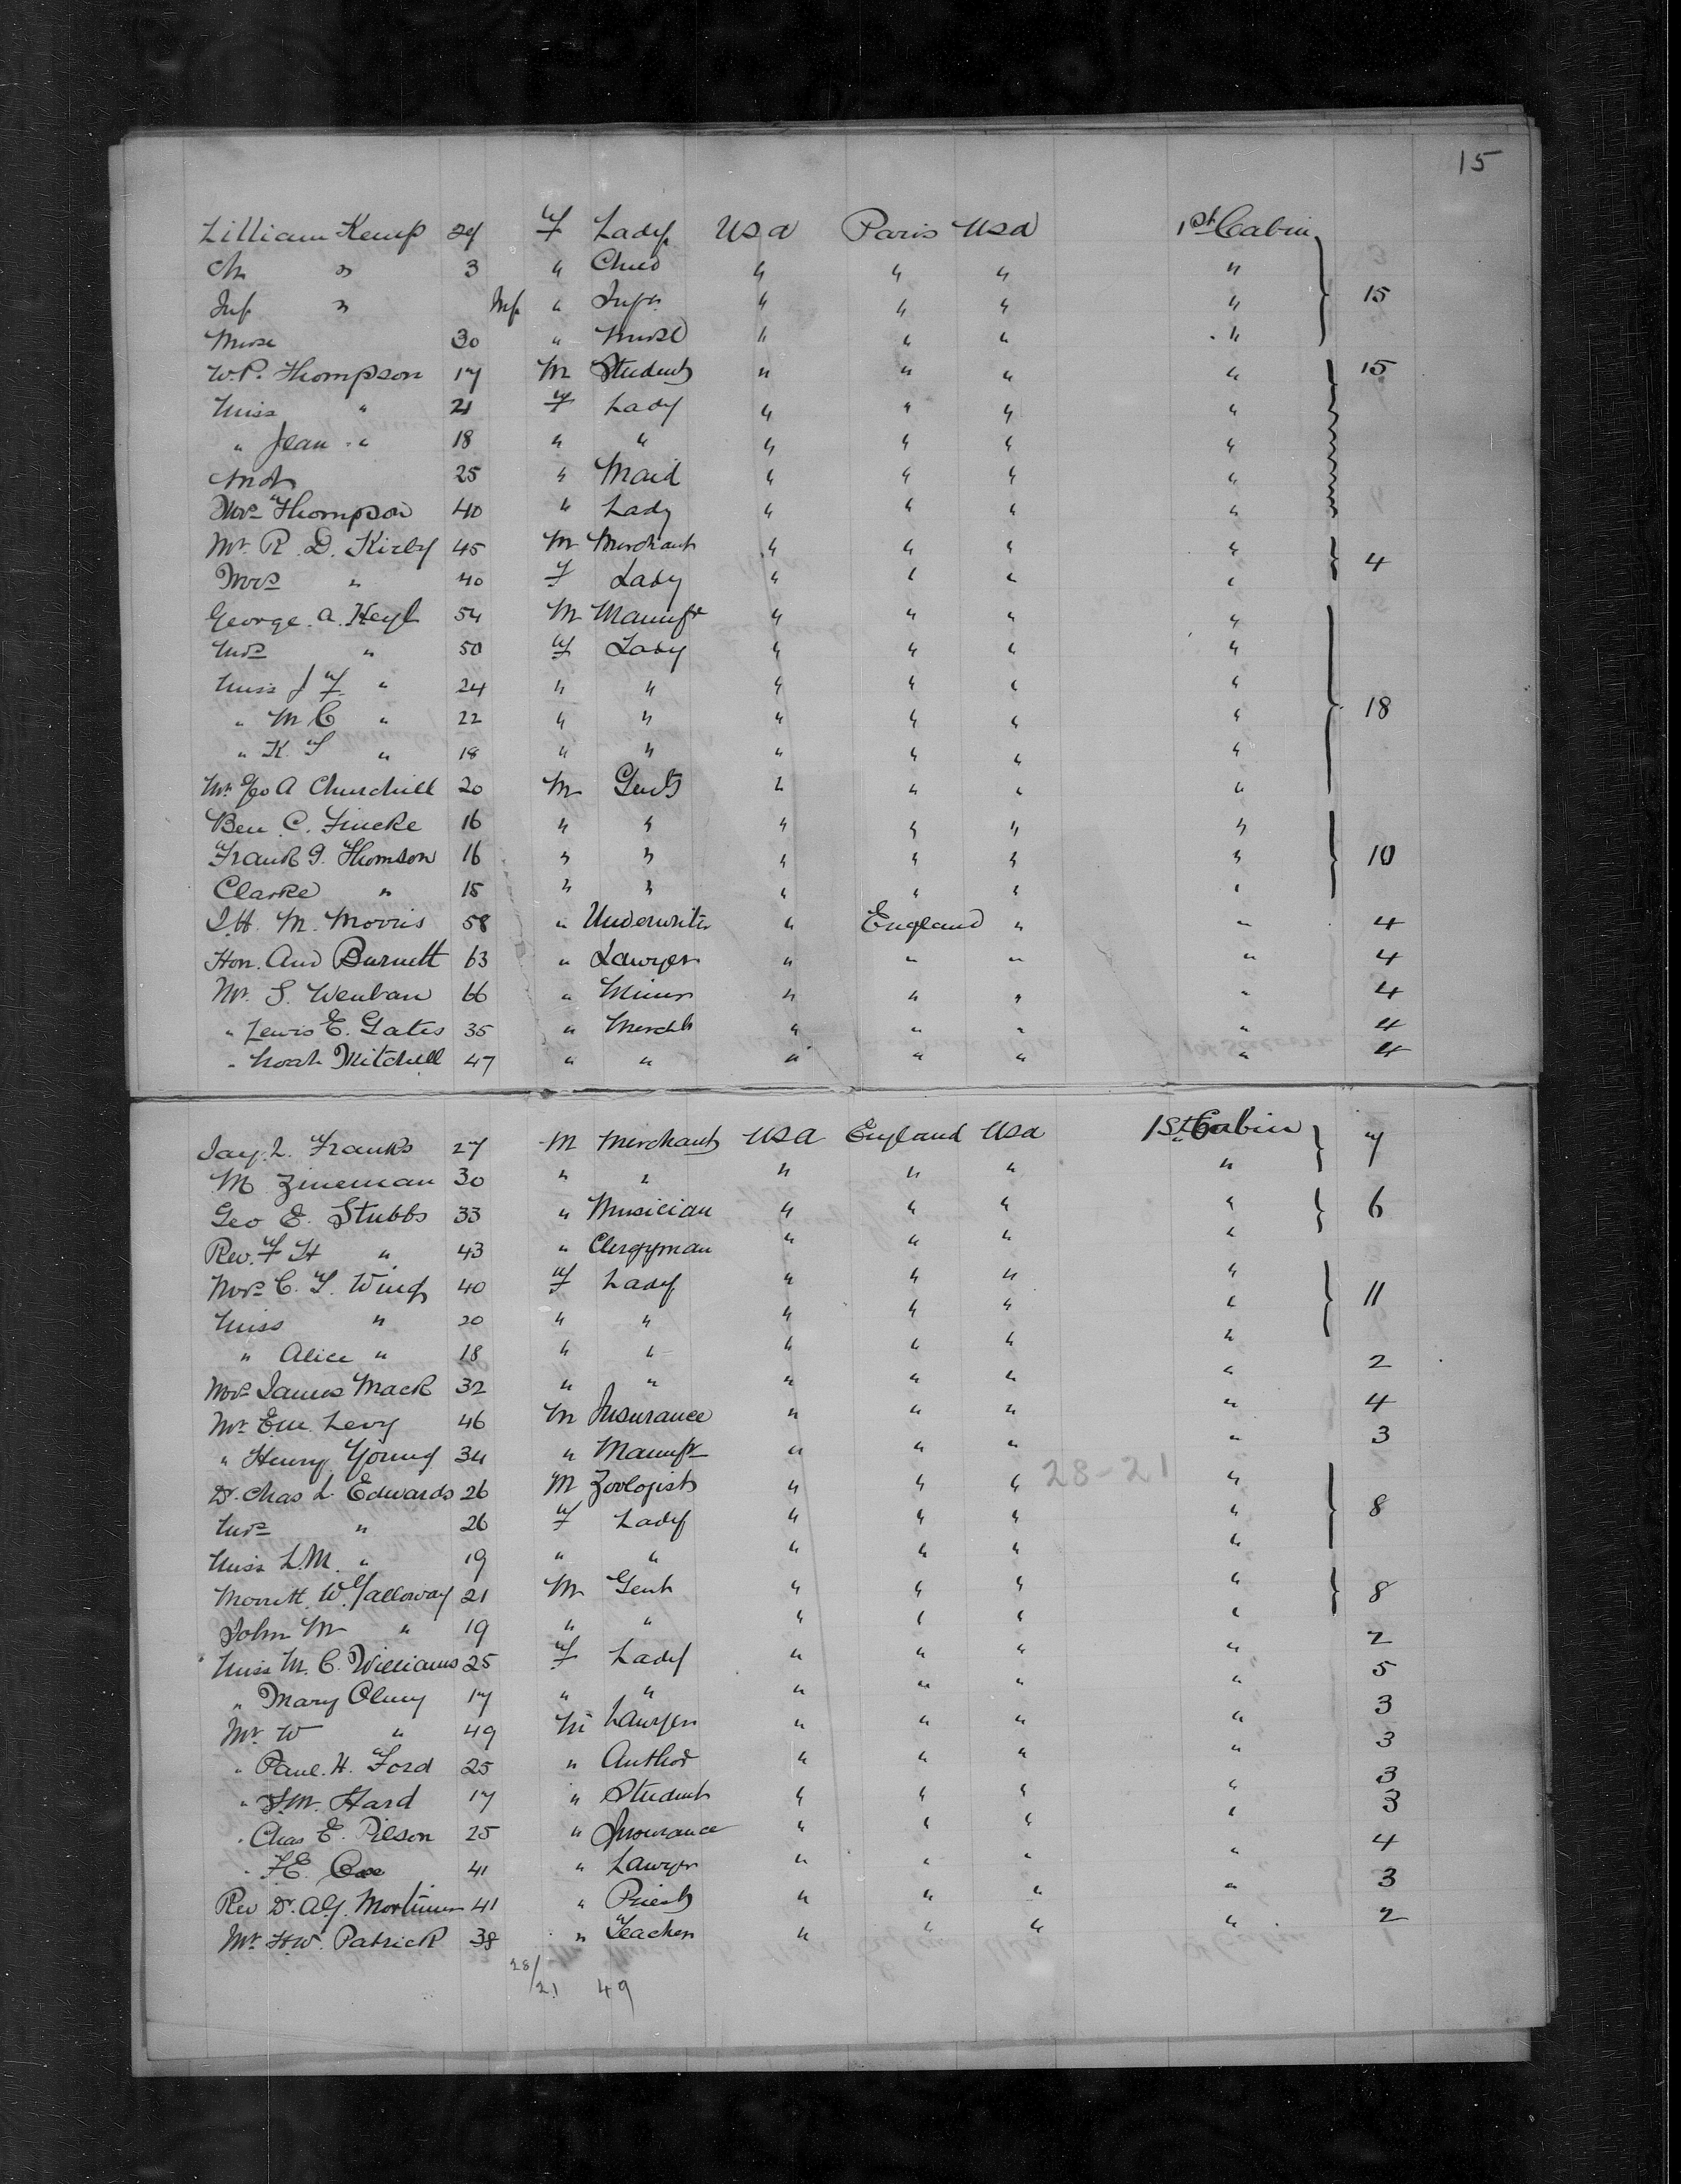 15
Lilliam Kemp 27 F Lady USA Paris USA 1st Cabin
Ch " 3 " Child " " " "
Inf " Inf " Infn " " " " 15
Nurse 30 " Nurse " " " "
W.P. Thompson 17 M Student " " " " 15
Miss " 21 F Lady " " " "
" Jean " 18 " " " " " "
25 " Maid " " " "
Mrs Thompson 40 " Lady " " " "
Mr. R. D. Kirby 45 M Merchant " " " " 4
Mrs " 40 F Lady " " " "
George. A. Heyl 54 M Manufr " " " "
Mrs " 50 F Lady " " " "
Miss J F " 24 " " " " " "
" M C " 22 " " " " " " 18
" K. S " 18 " " " " " "
Mr. Geo A Churchill 20 M Gent " " " "
Ben. C. Fincke 16 " " " " " "
Frank G. Thomson 16 " " " " " " 10
Clarke " 15 " " " " " "
M. Morris 58 " Underwriter " England " " 4
Hon. And Burnett 63 " Lawyer " " " " 4
Mr. S. Wenban 66 " Miner " " " " 4
" Lewis E. Gates 35 " Mercht " " " " 4
" Noah Mitchell 47 " " " " " " 4
Jay. L. Franks 27 M Merchant USA England USA 1st Cabin 7
M Zineman 30 " " " " " "
Geo E. Stubbs 33 " Musician " " " " 6
Rev. F H " 43 " Clergyman " " " "
Mrs C. S. Wing 40 F Lady " " " "
Miss " 20 " " " " " " 11
" Alice " 18 " " " " " "
Mrs James Mack 32 " " " " " " 2
Mr. Em. Levy 46 M Insurance " " " " 4
" Henry Young 34 " Manufr " " " " 3
Dr. Chas L. Edwards 26 M Zoologist " " " 28-21 "
Mrs " 26 F Lady " " " " 8
Miss L.M. " 19 " " " " " "
Merritt. W. Galloway 21 M Gent " " " " 8
John M " 19 " " " " " "
Miss M. C. Williams 25 F Lady " " " " 2
" Mary Olney 17 " " " " " " 5
Mr. W " 49 M Lawyer " " " " 3
" Paul. H. Ford 25 " Author " " " " 3
" S.M. Hard 17 " Student " " " " 3
" Chas E. Pilson 25 " Insurance " " " " 3
" F.E. Coe 41 " Lawyer " " " " 4
Rev Dr. Alf. Mortimer 41 " Priest " " " " 3
Mr. H.W. Patrick 38 " Teacher " " " " 2
28/21 49